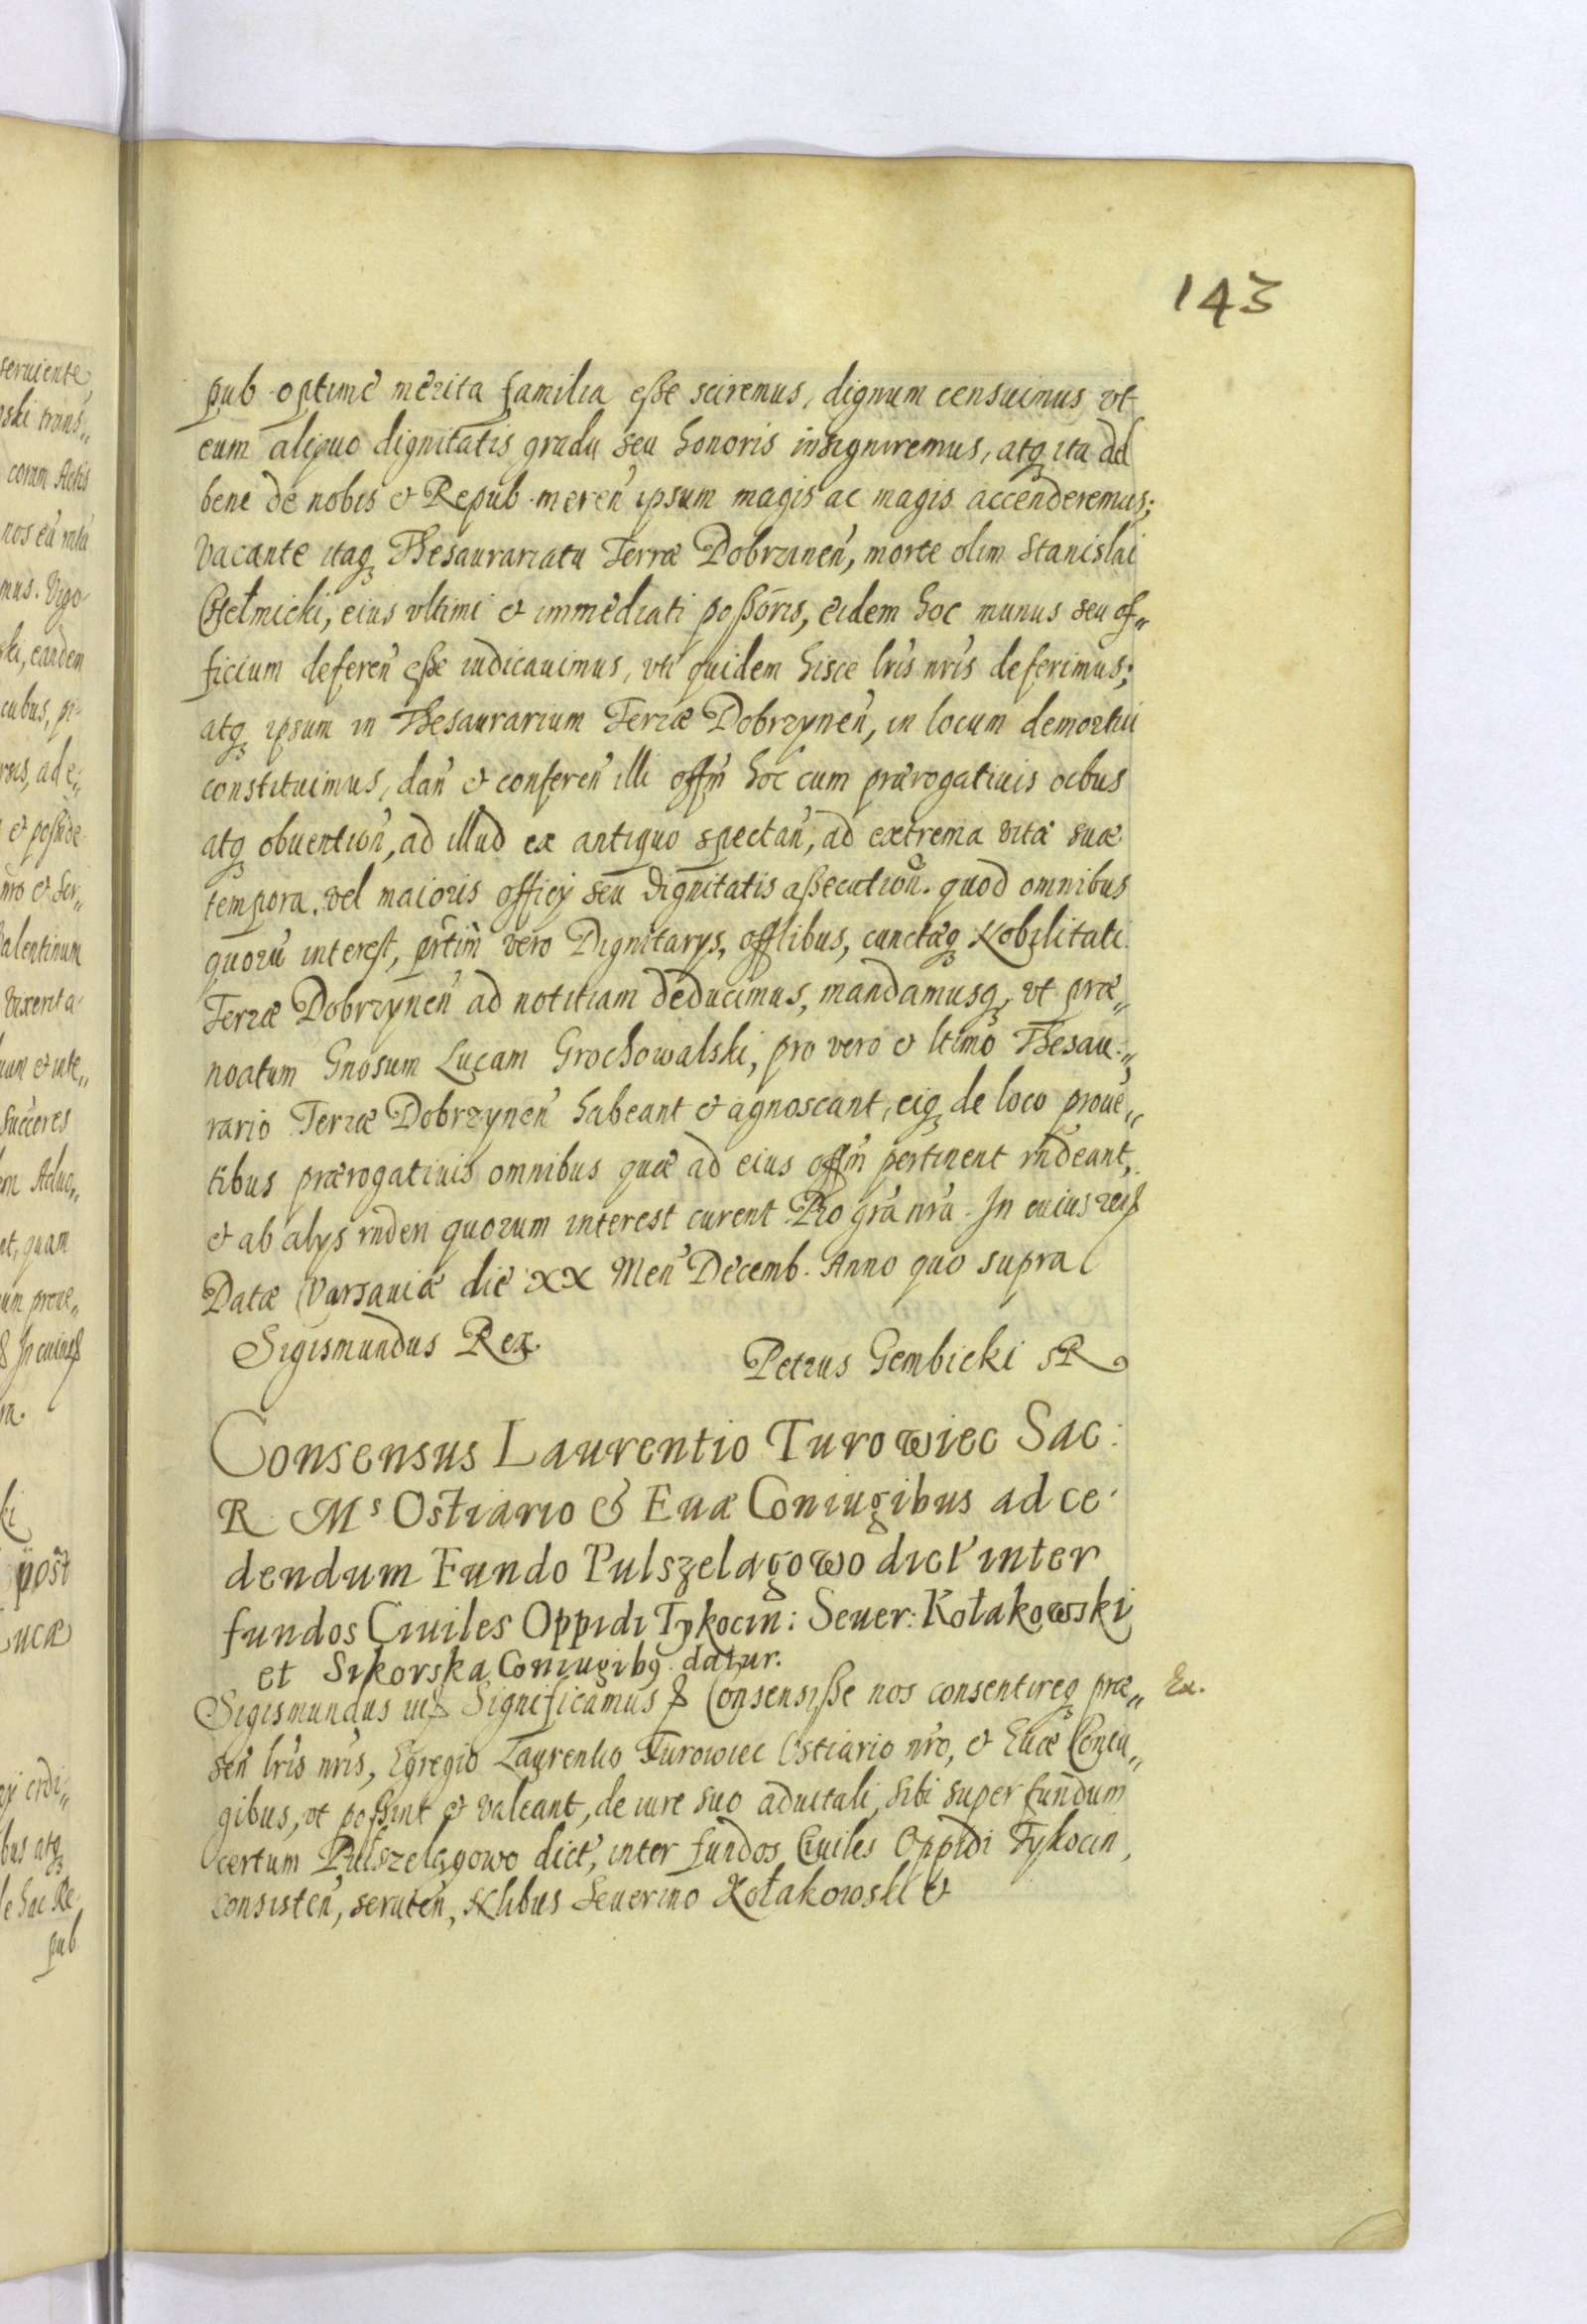 143
pub optimè mèrita familia esse sciremus, dignum censuimus vt
eum aliquo dignitatis gradu seu honoris insigniremus, atq ita ad
bene de nobis & Repub. meren ipsum magis ac magis accenderemus;
Vacante itaq Thesaurariatu Terræ Dobrzinen, morte olim Stanislai
Chełmicki, eius vltimi & immediati possoris, eidem hoc munus seu of„
ficium deferen esse iudicauimus, vti quidem hisce lris nris deferimus;
atq ipsum in Thesaurarium Terræ Dobrzynen, in locum demortui
constituimus, dan & conferen illi offm hoc cum prærogatiuis oibus
atq obuention, ad illud ex antiquo spectan, ad extrema vitæ suæ
tempora, vel maioris officij seu dignitatis assecution. quod omnibus
quorū interest, prtim vero Dignitarys, offlibus, cunctæq Nobilitati
Terræ Dobrzynen ad notitiam deducimus, mandamusq, vt præ„
noatum Gnosum Lucam Grochowalski, pro vero & ltimo Thesau„
rario Terræ Dobrzynen habeant & agnoscant, eiq de loco prouē„
tibus prærogatiuis omnibus quæ ad eius offm pertinent rndeant,
& ab alys rnderi quorum interest curent. Pro gra nra. In cuius rei
Datæ Varsauiæ die XX Men Decemb. Anno quo supra
Sigismundus Rex
Petrus Gembicki SR
Consensus Laurentio Turowiec Sac:
R. Ms Ostiario & Euæ Coniugibus ad ce
dendum Fundo Pulszelagowo dict inter
fundos Ciuiles Oppidi Tykocin: Seuer: Kołakowski
et Sikorska Coniugibq datur.
Sigismundus Significamus Consensisse nos consentireq præ„
Ex.
sen lris nris, Egregio Laurentio Turowiec Ostiario nro, & Euæ Coniu„
gibus, vt possint & valeant, de iure suo aduitali, sibi super fundum
certum Pulszelagowo dict, inter fundos Ciuiles Oppidi Tykocin,
consisten, seruien, Nlibus Seuerino Kołakowski &